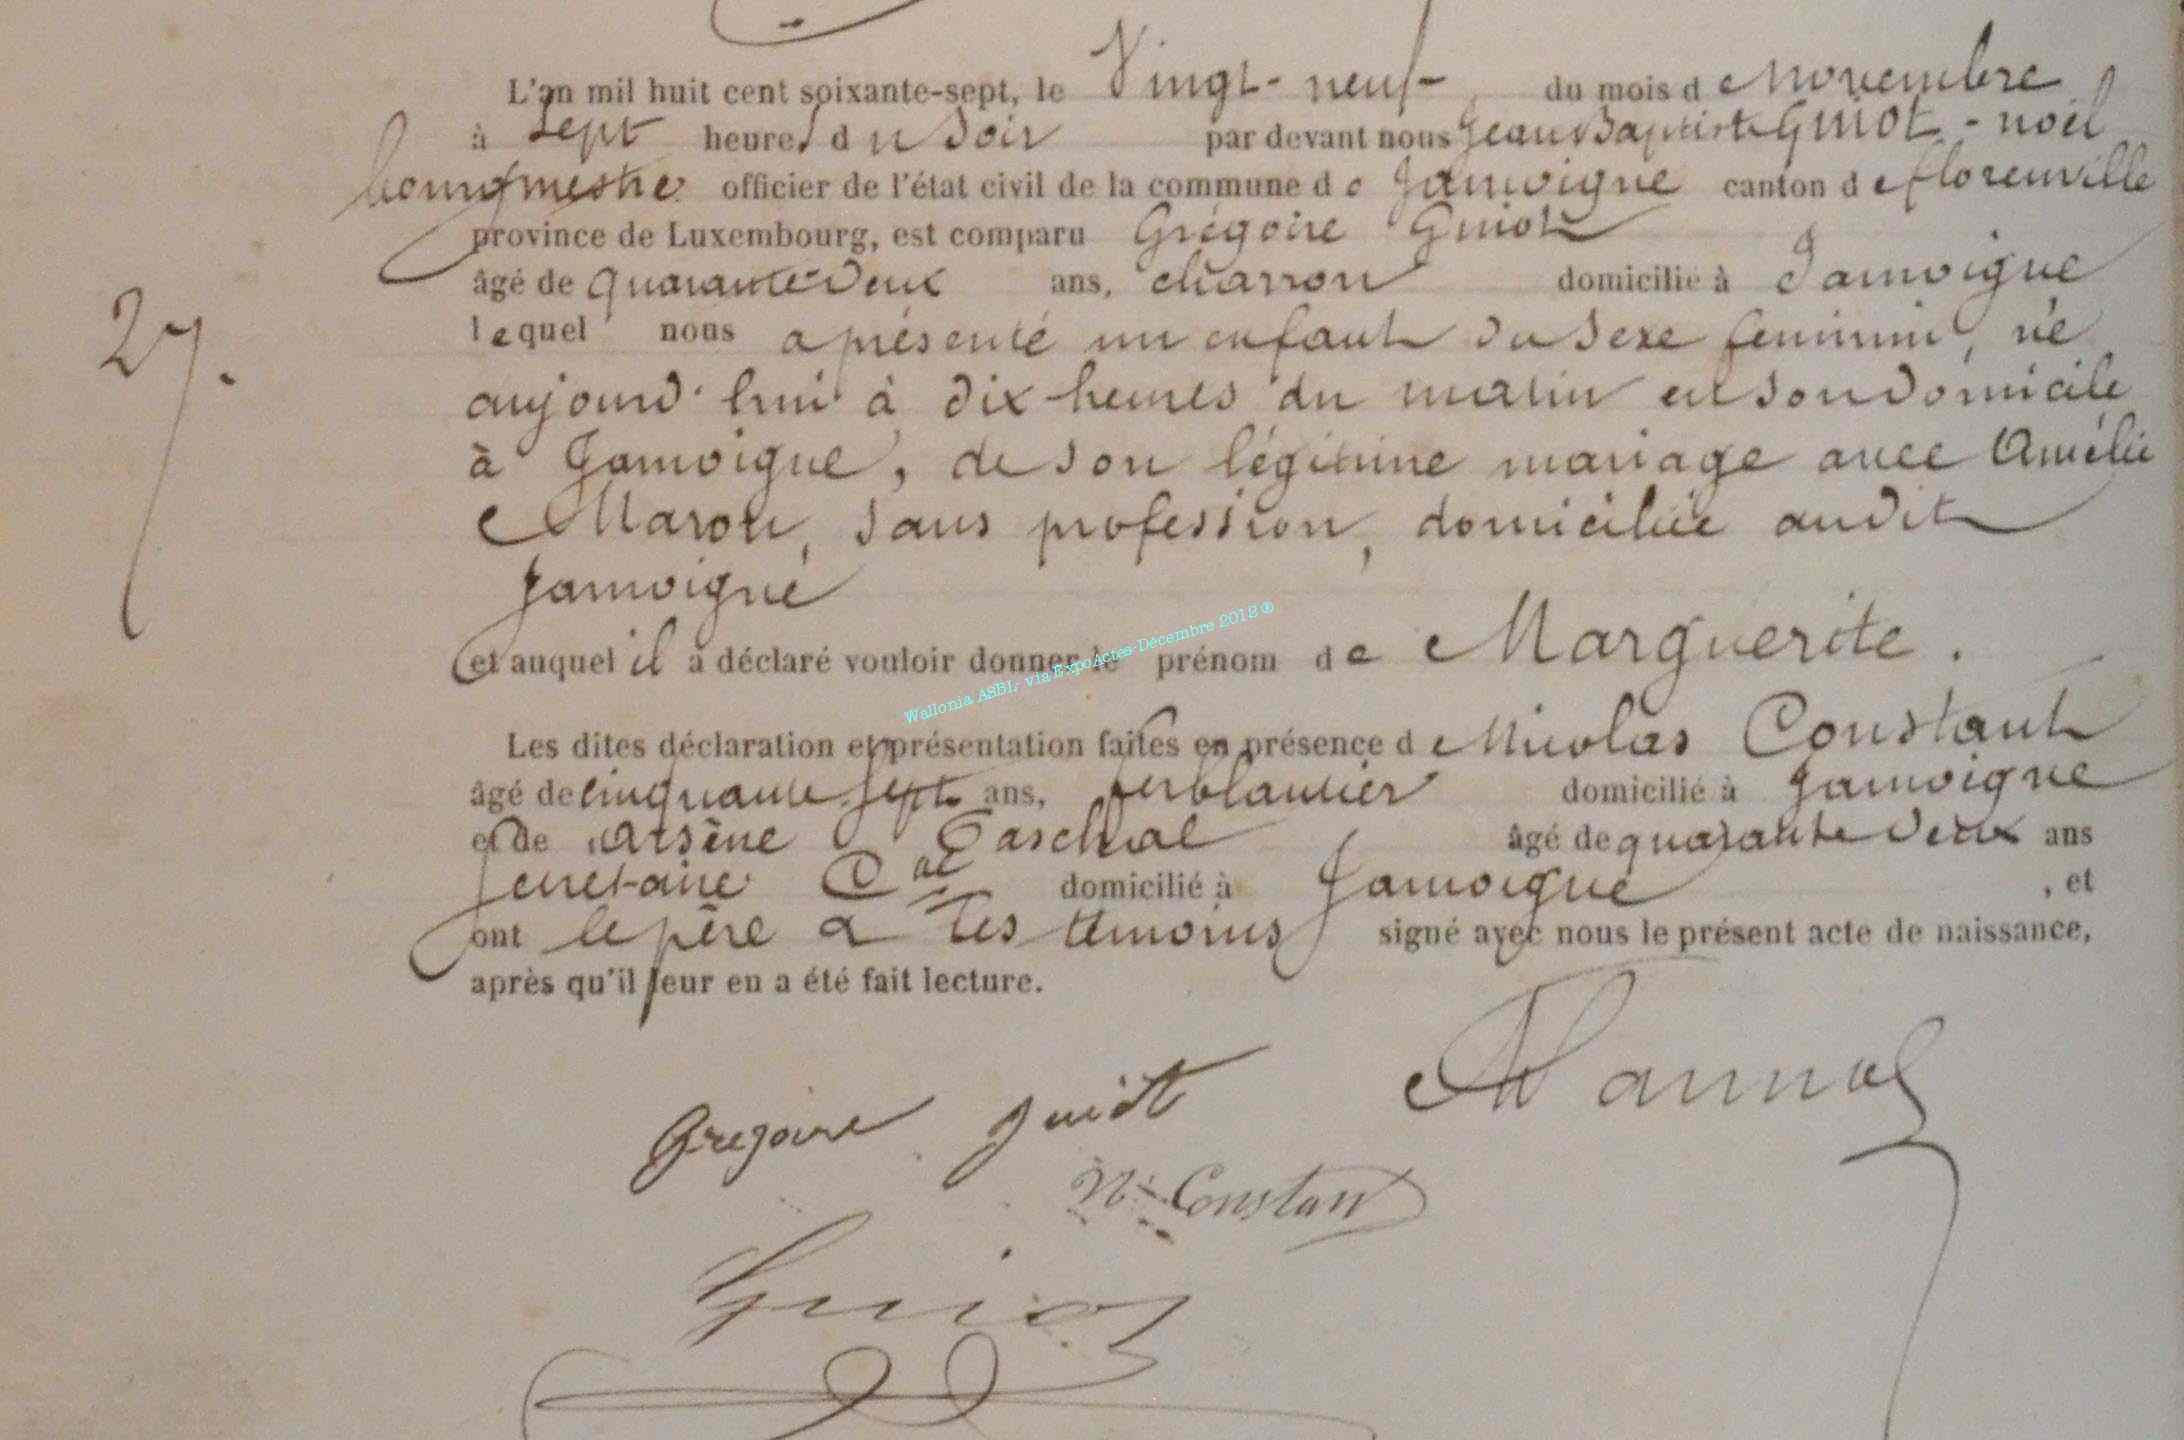 L'an mil huit cent soixante-sept, le Vingt-neuf du mois de Novembre
à Sept heures du Soir par devant nous Jean Baptiste Guiot-noël
bourgmestre officier de l'état civil de la commune de Jamoigne canton de florenville
province de Luxembourg, est comparu Grégoire Guiot
âgé de quarante-deux ans, charron domicilié à Jamoigne
lequel nous a présenté un enfant du sexe feminin, né
aujourd'hui à dix heures du matin en son domicile
à Jamoigne, de son légitime mariage avec Amélie
Maron, sans profession, domiciliée audit
Jamoigne
et auquel il a déclaré vouloir donner le prénom de Marguerite.
Wallonia ASBL via ExpoActes-Décembre 2012®
Les dites déclaration et présentation faites en présence de Nicolas Constant
âgé de cinquante sept ans, ferblantier domicilié à Jamoigne
et de arsène âgé de quarante deux ans
secretaire Cal domicilié à Jamoigne, et
ont le père & les témoins signé avec nous le présent acte de naissance,
après qu'il leur en a été fait lecture.
27.
Gregoire guiot
N. Constant
Guiot